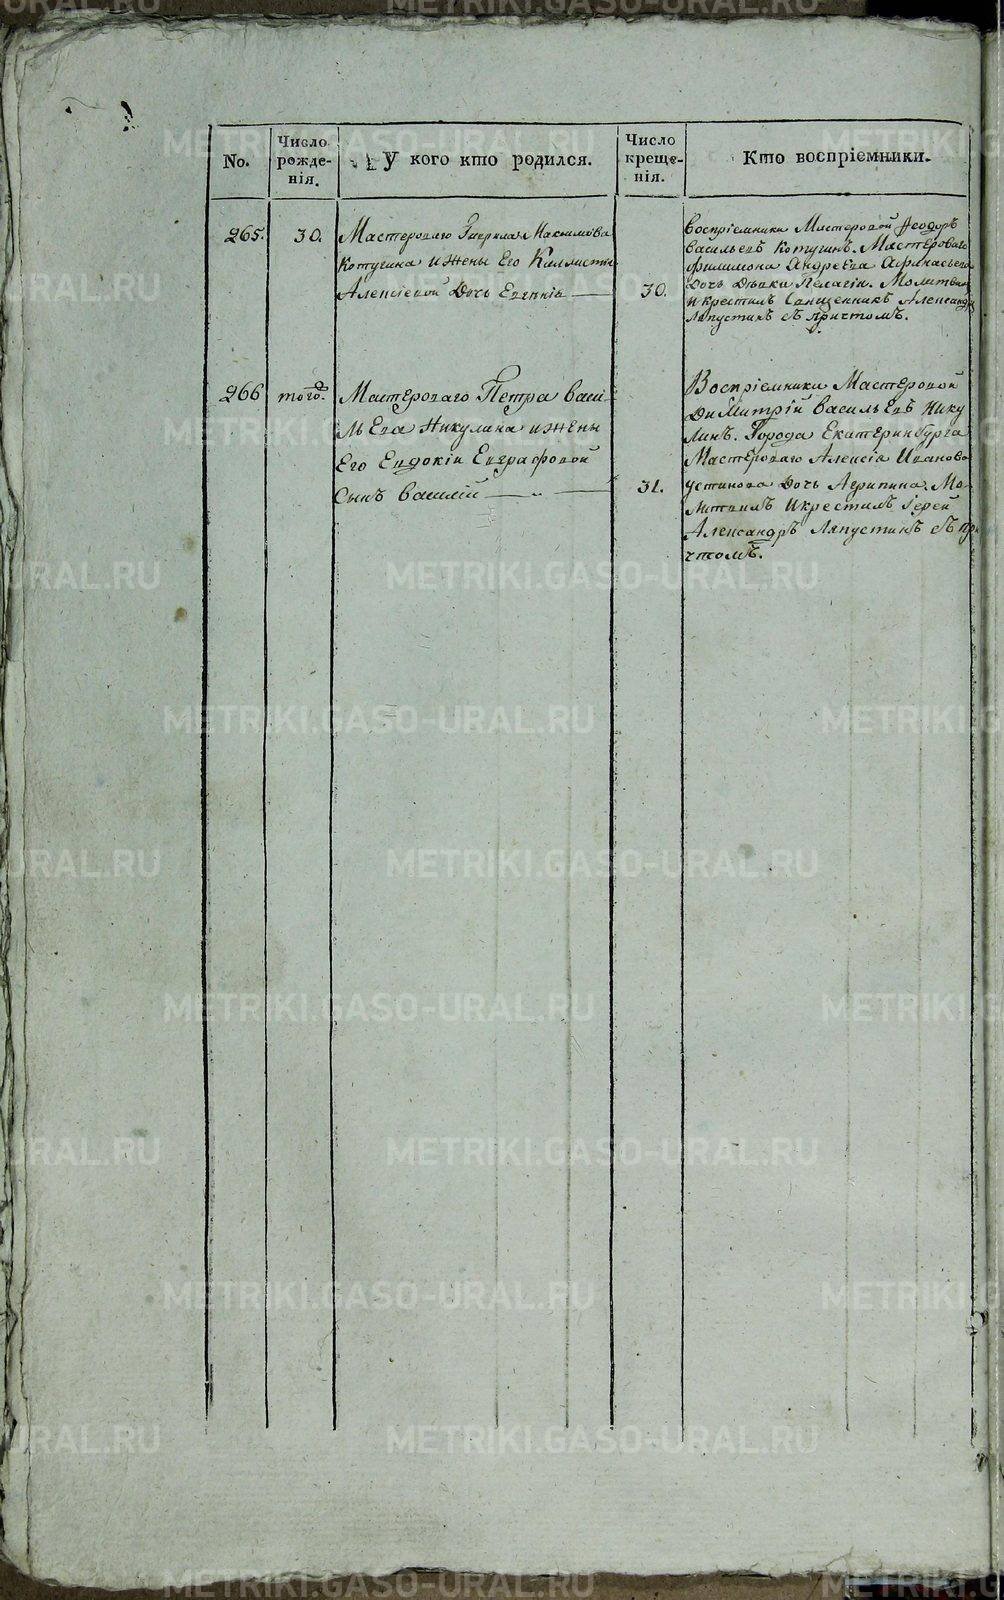 No.
Число рожде-нія.
У кого кто родился.
Число креще-нія.
Кто воспріемники.
265.
30.
Мастероваго Гаврила Максимова
Котугина и жены Его Каллисты
Алексіевой Дочь Евгенія
30.
Воспріемники Мастеровой Ѳеодоръ
Васильевъ Котугинъ. Мастероваго
Филимона Андреева Афанасьева
Дочь Дѣвка Пелагія. Молитвилъ
и крестилъ Священникъ Александръ
Ляпустинъ съ причтомъ.
266
того.
Мастероваго Петра Васи
льева Никулина и жены
Его Евдокіи Евграфовой
Сынъ Василій
31.
Воспріемники Мастеровой
Димитрій Васильевъ Нику
линъ. Города Екатеринбурга
Мастероваго Алексія Иванова
Устинова Дочь Агрипина. Мо
литвилъ и крестилъ Іерей
Александръ Ляпустинъ съ при
чтомъ.
METRIKI.GASO-URAL.RU